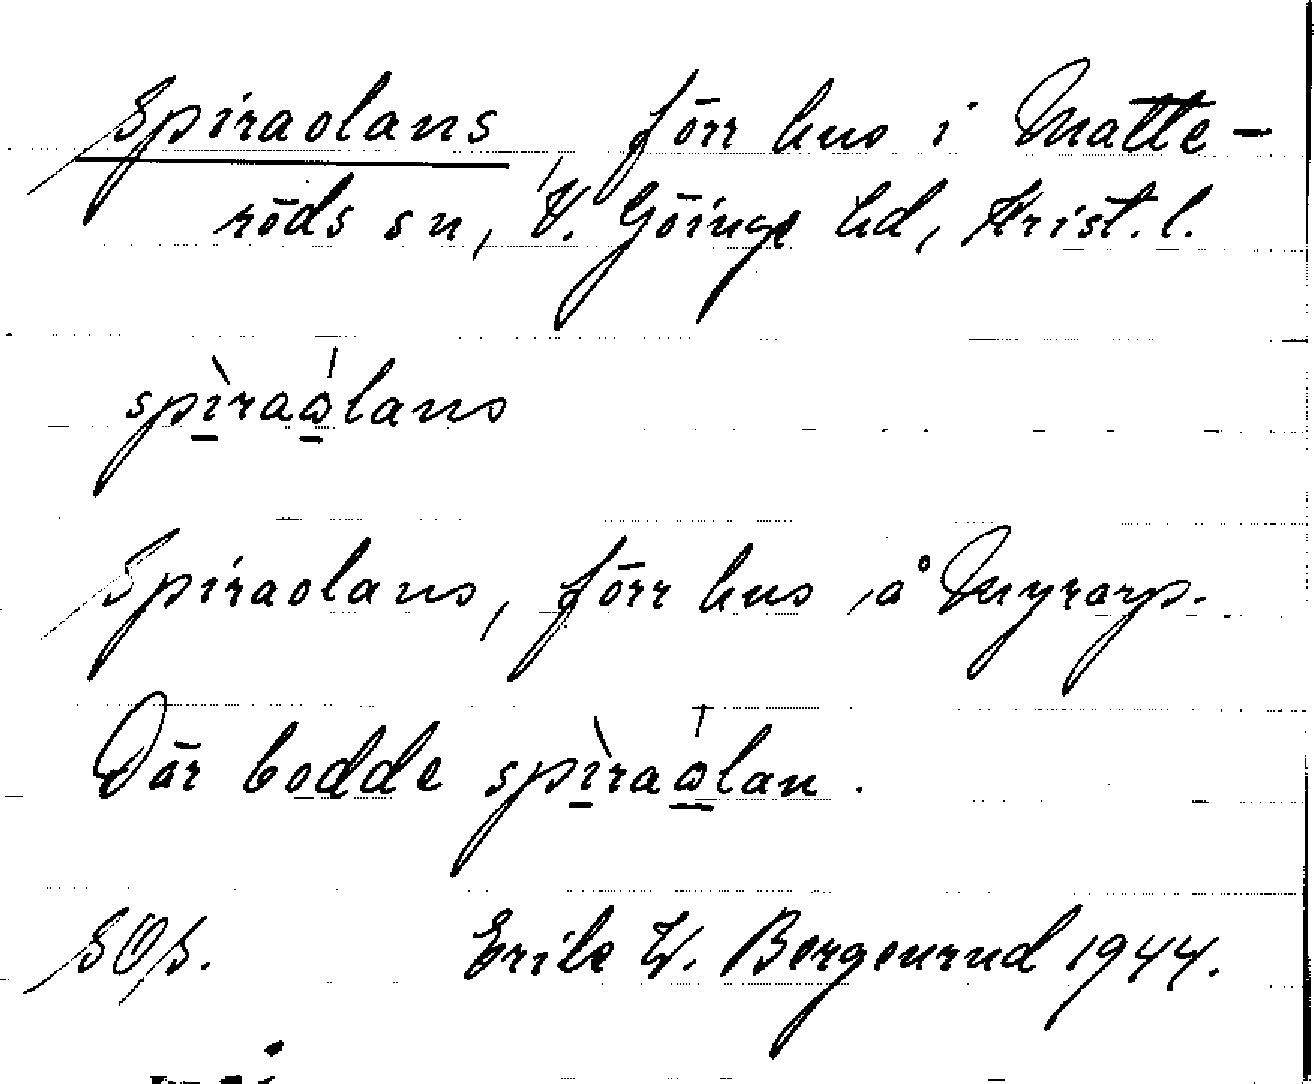 Spiraolans, förr hus i Matte-
röds sn, V. Göinge hd, Krist. l.
spìraólans
Spiraolans, förr hus å Myrarp.
Där bodde spìraólan.
SOS. Erik W. Bergenrud 1944.